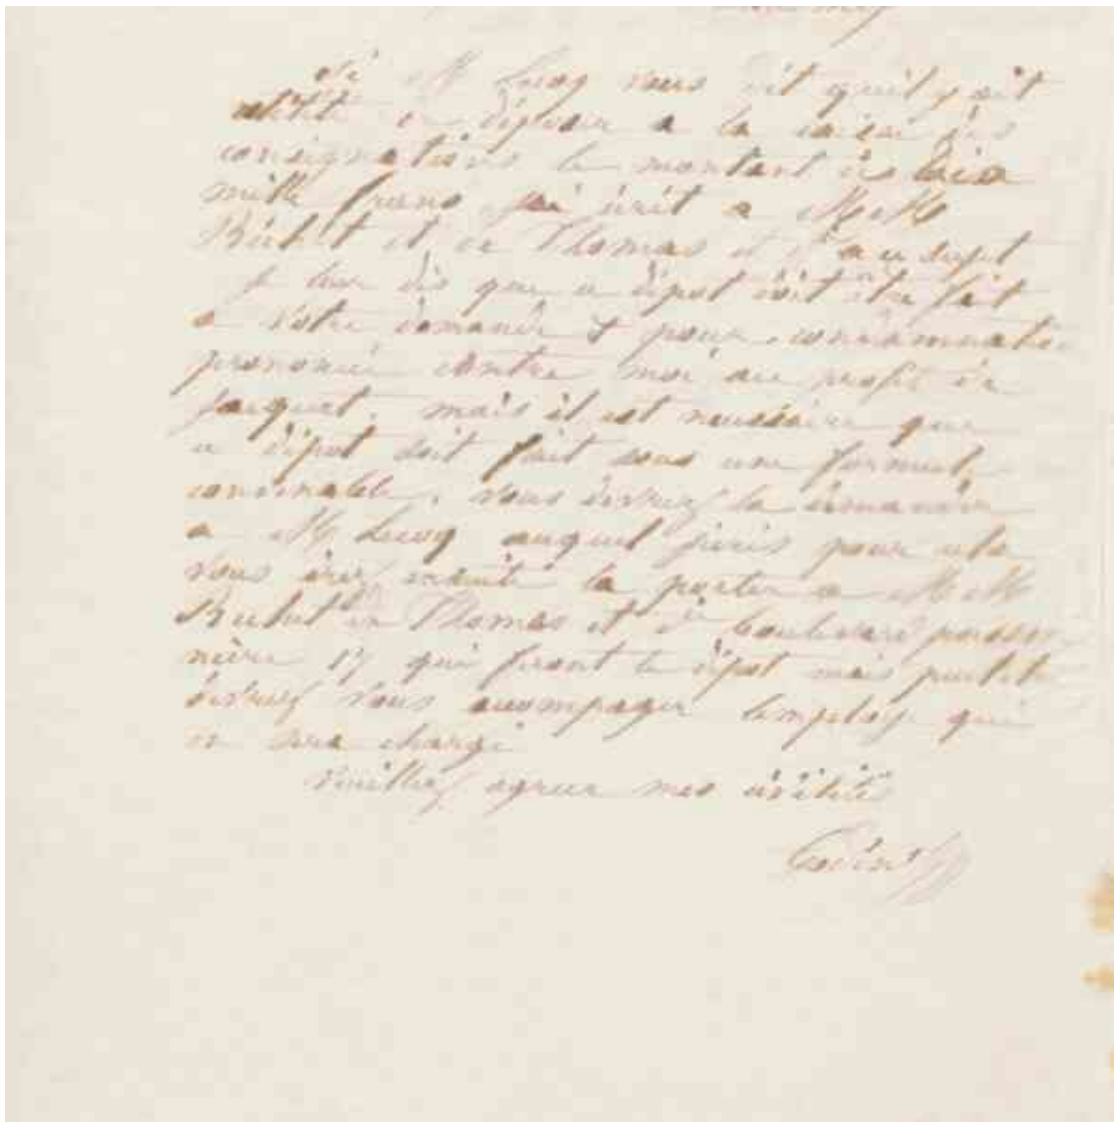 Si M Lecoq vous dit quil y ait
utilité de déposer a la caisse des
consignations le montant des trois
mille francs jai écrit a MM
et de Thomas et Cie a ce sujet
je leur dis que ce dépot doit être fait
a votre demande et pour condamnation
prononcée contre moi au profit de
Jacquet. mais il est nécessaire que
ce dépot soit fait sous une formule
convenable. vous devrez la demander
a M Lecoq auquel jécris pour cela
vous irez ensuite la porter a MM
de Thomas et Cie boulevard poisson
nière 17 qui feront le dépot mais peutêtre
devrez vous accompager lemployé qui
en sera chargé
Veuillez agréer mes civilités
Godin